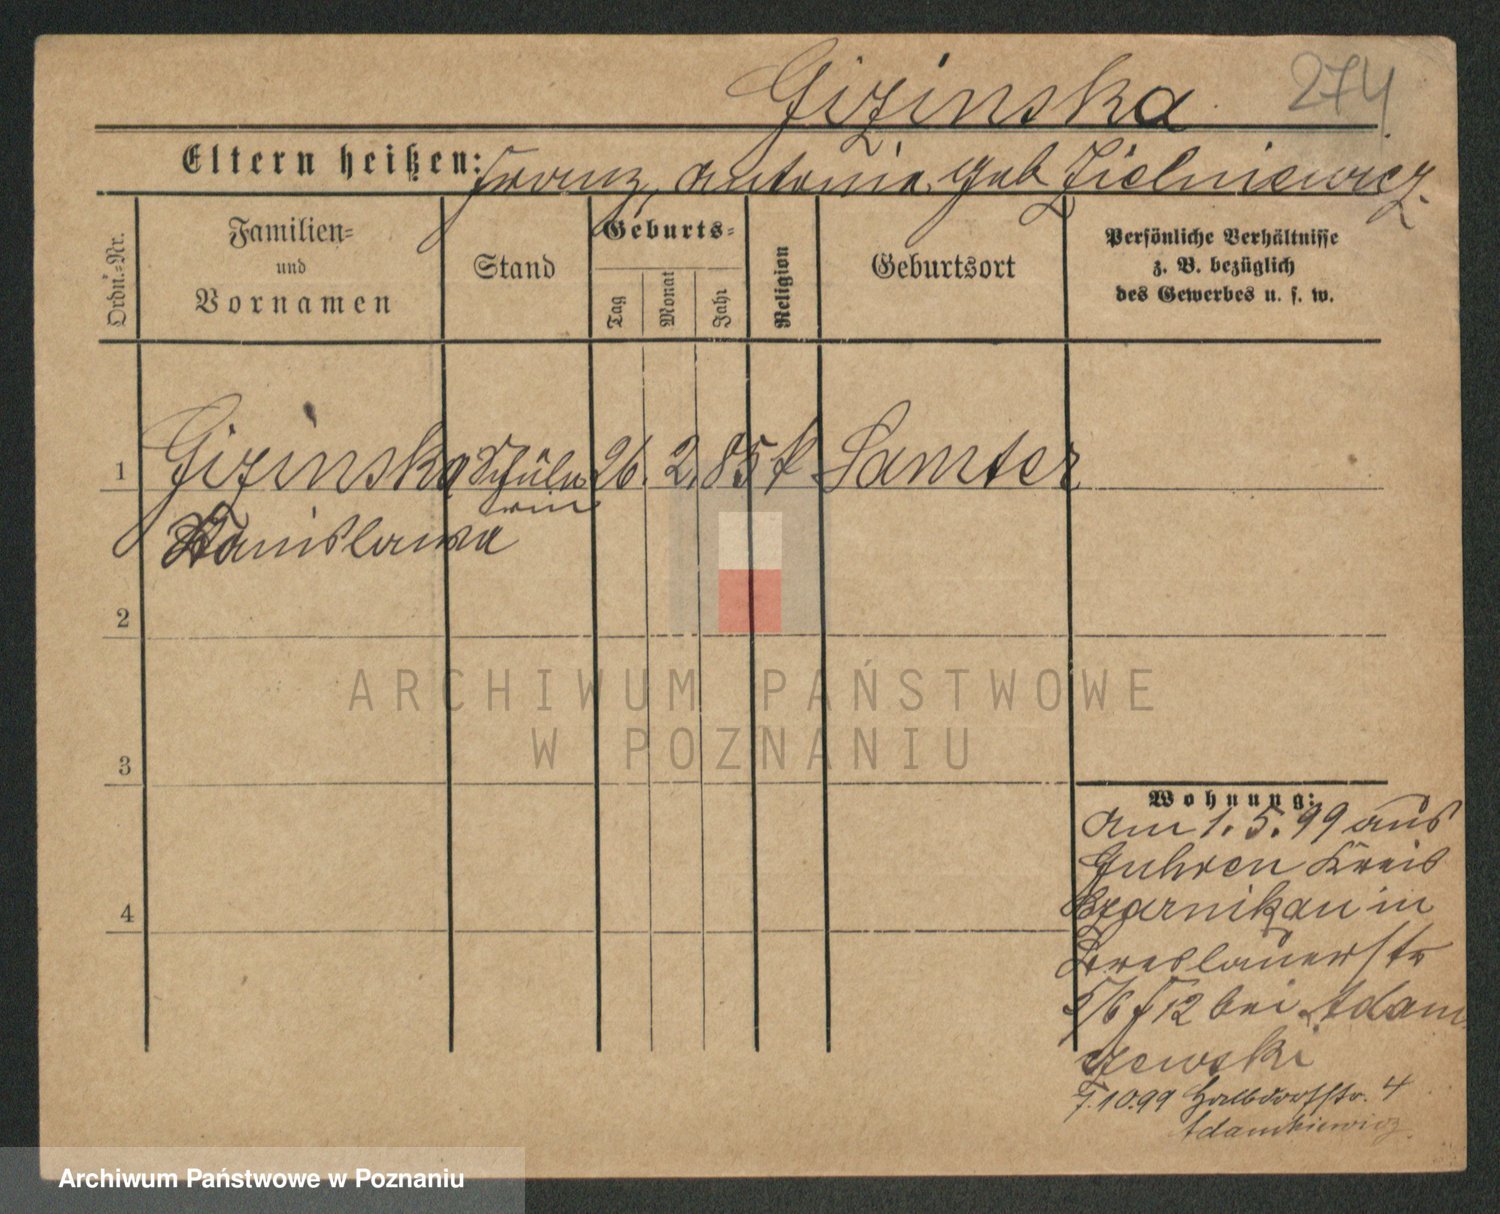 Gizinska 274
Eltern heißen: Franz, Antonie geb Zielniewicz.
Ordn.-Nr.
Familien-
und
Vornamen
Stand
Geburts-
Tag
Monat
Jahr
Religion
Geburtsort
Persönliche Verhältnisse
z. B. bezüglich
des Gewerbes u. s. w.
1 Gizinska Schüle 26. 2. 85 k Samter
rin
Stanislawa
2
3
4
Wohnung:
am 1. 5. 99 aus
Guhren Kreis
Czarnikau in
Breslauerstr
bei Adam
czewski
7.10.99 Halbdorfstr. 4
Adamkiewicz.
ARCHIWUM PAŃSTWOWE
W POZNANIU
Archiwum Państwowe w Poznaniu